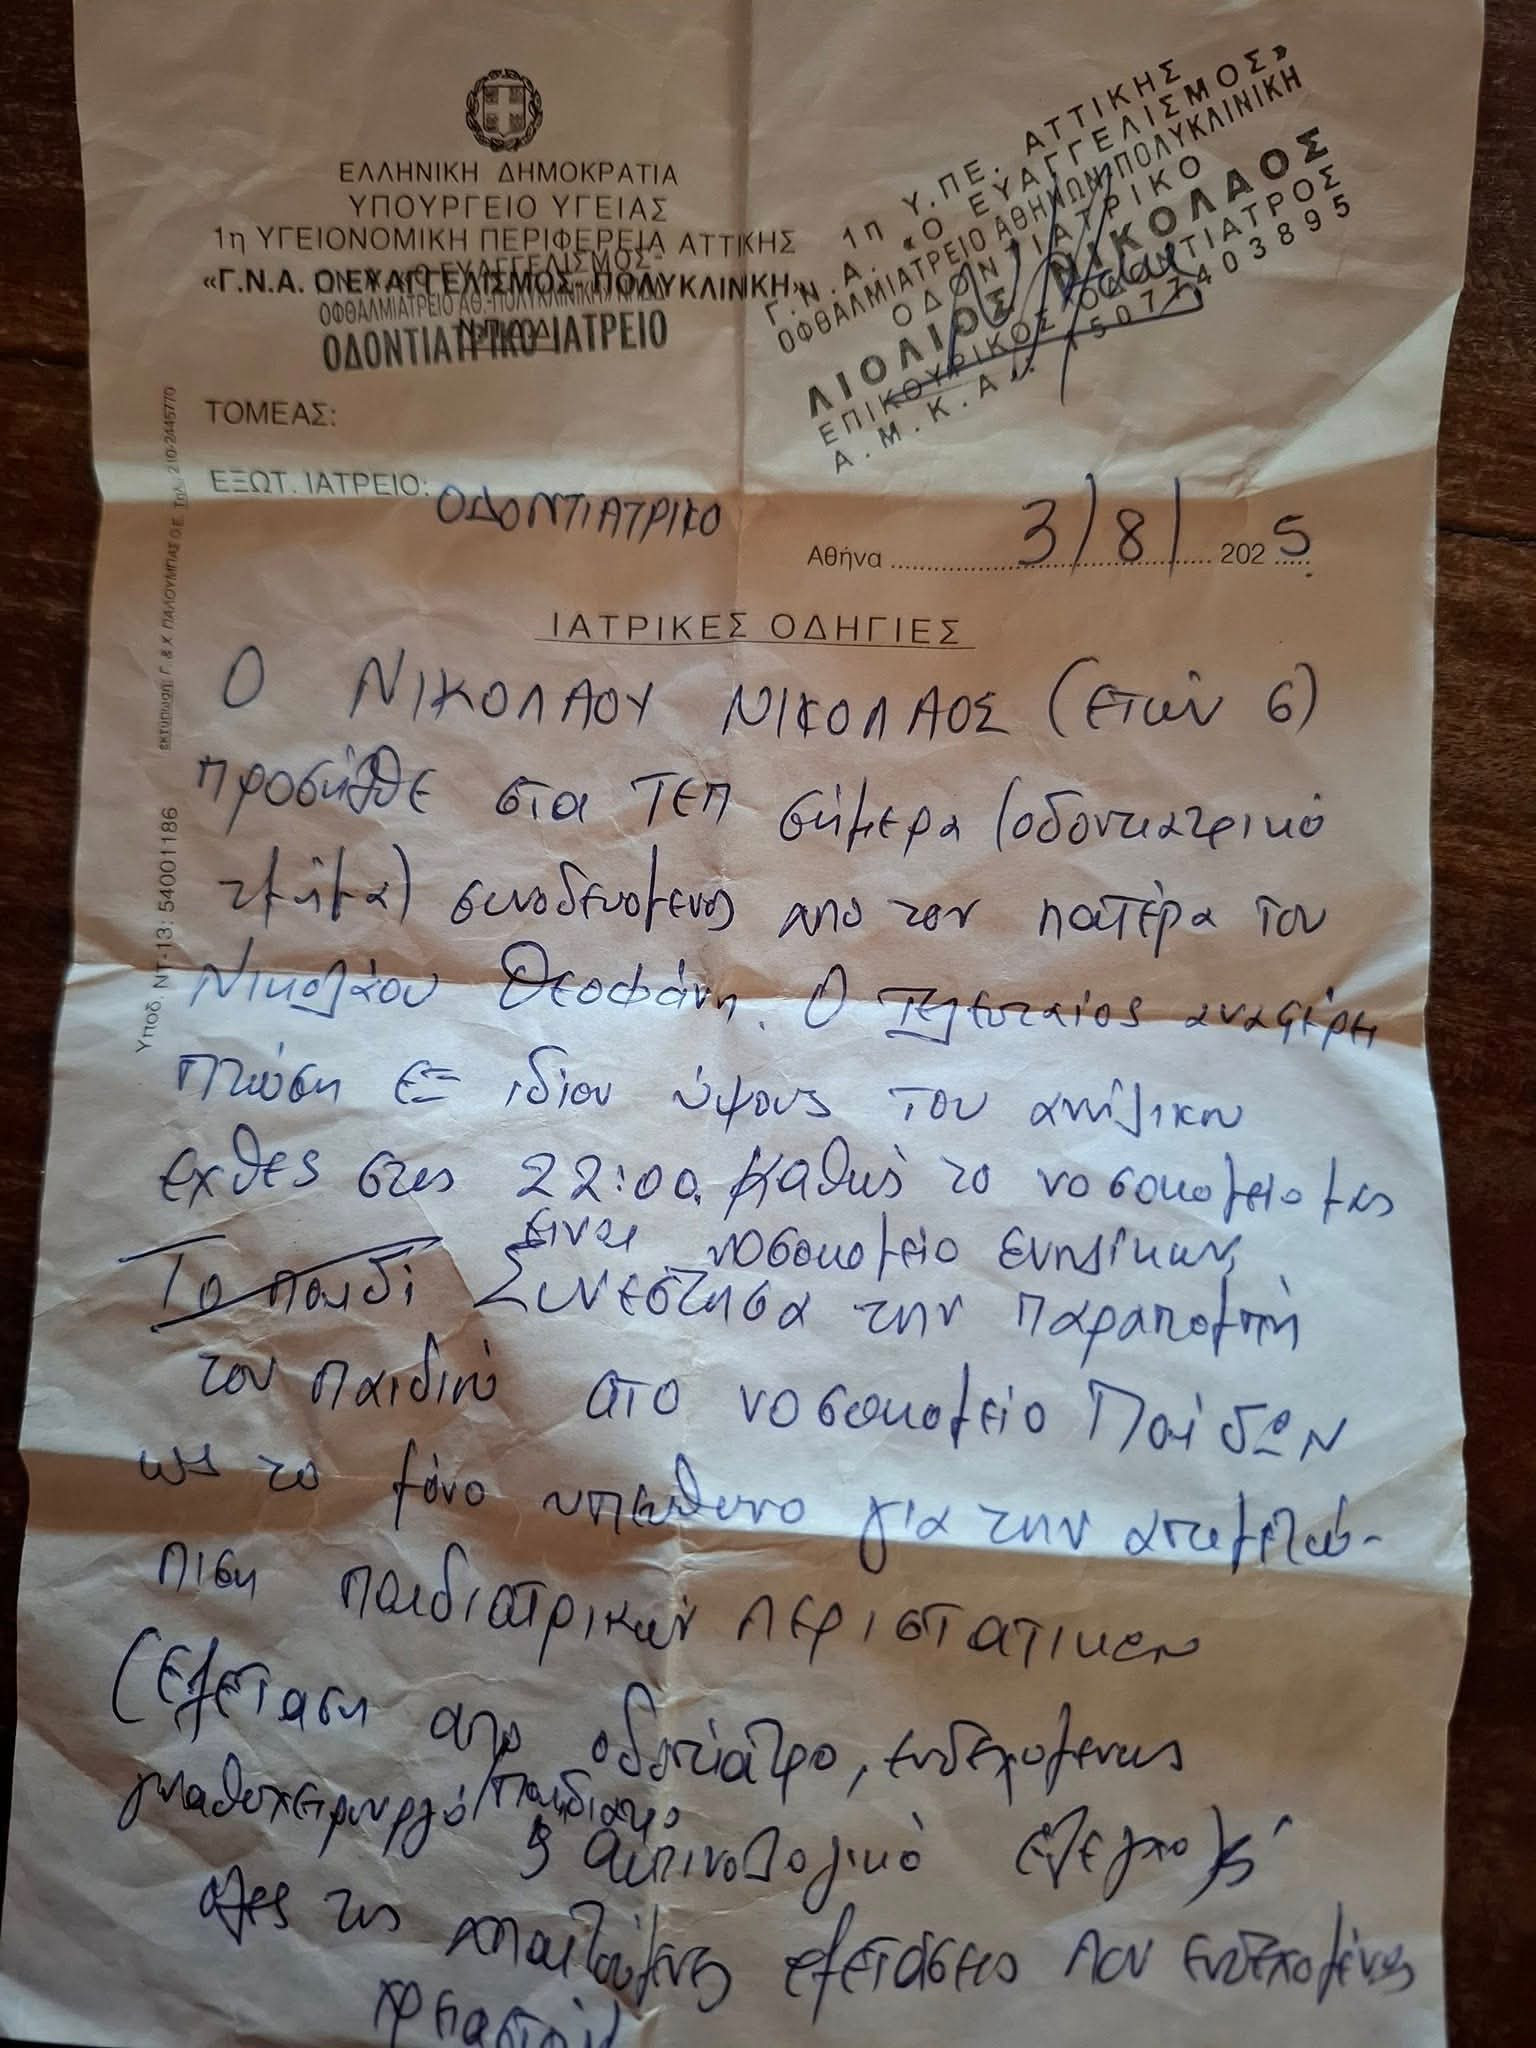 ΕΛΛΗΝΙΚΗ ΔΗΜΟΚΡΑΤΙΑ
ΥΠΟΥΡΓΕΙΟ ΥΓΕΙΑΣ
1η ΥΓΕΙΟΝΟΜΙΚΗ ΠΕΡΙΦΕΡΕΙΑ ΑΤΤΙΚΗΣ
«Γ.Ν.Α. Ο ΕΥΑΓΓΕΛΙΣΜΟΣ- ΠΟΛΥΚΛΙΝΙΚΗ»
ΟΦΘΑΛΜΙΑΤΡΕΙΟ ΑΘ.-ΠΟΛΥΚΛΙΝΙΚΗ» ΝΠΔΔ
Ν.Π.Δ.Δ.
ΟΔΟΝΤΙΑΤΡΙΚΟ ΙΑΤΡΕΙΟ
1η Υ.ΠΕ. ΑΤΤΙΚΗΣ
Γ.Ν.Α. «Ο ΕΥΑΓΓΕΛΙΣΜΟΣ»
ΟΦΘΑΛΜΙΑΤΡΕΙΟ ΑΘΗΝΩΝ-ΠΟΛΥΚΛΙΝΙΚΗ
ΟΔΟΝΤΙΑΤΡΙΚΟ
ΛΙΟΛΙΟΣ ΝΙΚΟΛΑΟΣ
ΕΠΙΚΟΥΡΙΚΟΣ ΟΔΟΝΤΙΑΤΡΟΣ
Α.Μ.Κ.Α.: 15077403895
ΤΟΜΕΑΣ:
ΕΞΩΤ. ΙΑΤΡΕΙΟ: ΟΔΟΝΤΙΑΤΡΙΚΟ
Αθήνα 3/8/ 2025
ΙΑΤΡΙΚΕΣ ΟΔΗΓΙΕΣ
Ο ΝΙΚΟΛΑΟΥ ΝΙΚΟΛΑΟΣ (ετών 6)
προσήλθε στα ΤΕΠ σήμερα (οδοντιατρικό
τμήμα) συνοδευομενος απο τον πατέρα του
Νικολάου Θεοφάνη. Ο τελευταίος αναφέρει
πτώση εξ ιδίου ύψους του ανηλίκου
εχθές στις 22:00. Καθώς το νοσοκομείο μας
είναι νοσοκομείο ενηλίκων,
Το παιδί Συνέστησα την παραπομπή
του παιδιού στο νοσοκομείο Παίδων
ως το μόνο υπεύθυνο για την αντιμετώ-
πιση παιδιατρικών περιστατικών
(εξέταση απο οδοντίατρο, ενδεχομενως
γναθοχειρουργό/παιδίατρο
& ακτινολογικό έλεγχο) &
όλες τις απαιτούμενες εξετάσεις που ενδεχομένως
Υποδ. ΝΤ-13: 54001186 ΕΚΤΥΠΩΣΗ: Γ. & Χ. ΠΑΛΟΥΜΠΑΣ Ο.Ε. Τηλ.: 210-2445770